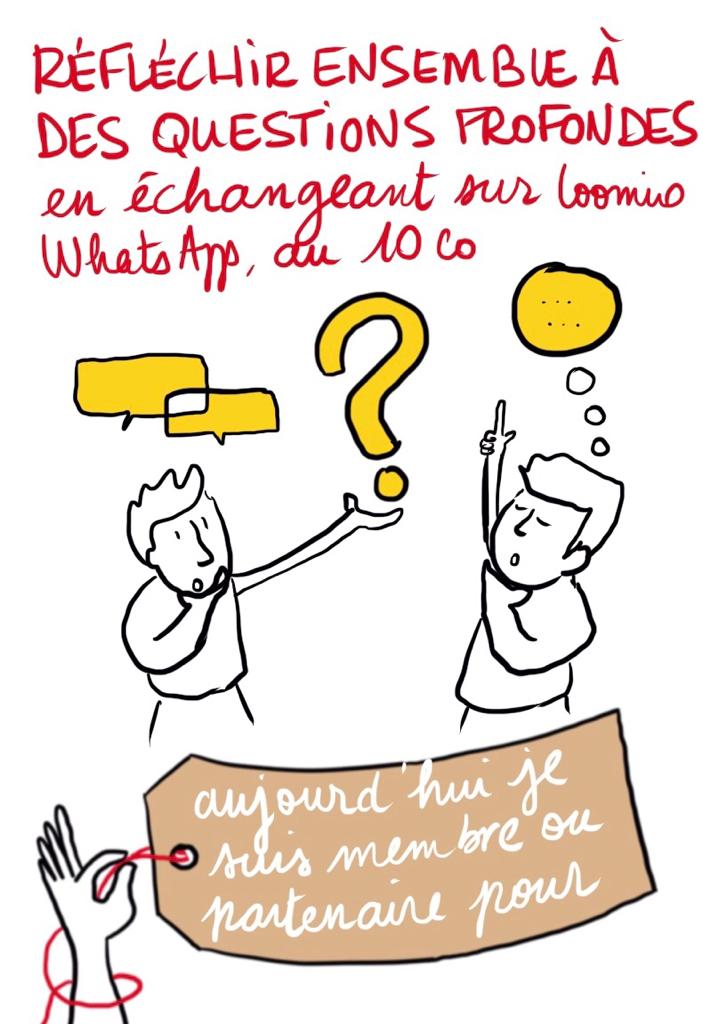 RÉFLÉCHIR ENSEMBLE À
DES QUESTIONS PROFONDES
en échangeant sur loomio
WhatsApp, au 10 Co
aujourd'hui je
suis membre ou
partenaire pour